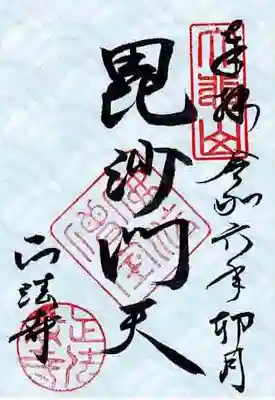 奉拝 令和六年卯月
毘沙門天
正法寺